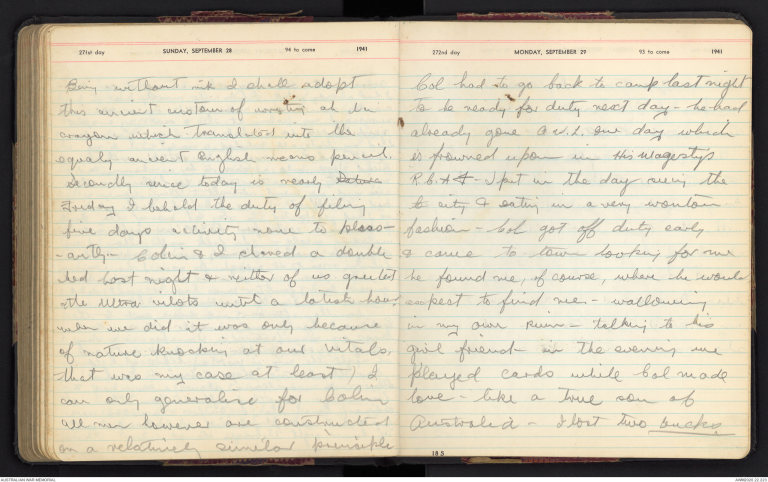 271st day SUNDAY, SEPTEMBER 28 94 to come 1941
Being without ink I shall adopt
this ancient custom of writing ah la
crayon which translated into the
equaly ancient English means pencil.
Secondly since today is nearly
Friday I behold the duty of filing
five days activity none to pleas-
-antly - Colin & I shared a double
bed last night & neither of us greeted
the Ultra violets until a latish hour
when we did it was only because
of nature knocking at our vitals.
that was my case at least) I
can only generalise for Colin
all men however are constructed
on a relatively similar principle
272nd day MONDAY, SEPTEMBER 29 93 to come 1941
Col had to go back to camp last night
to be ready for duty next day - he had
already gone A.W.L. one day which
is frowned upon in His Magestys
R.A.A.F - I put in the day seeing the
to city & eating in a very wonton
fashion - Col got off duty early
& came to town looking for me
he found me, of course, where he would
expect to find me - wallowing
in my own ruin - talking to his
girl friend - in the evening we
played cards while Col made
love - like a true son of
Australia - I lost two bucks.
18 S
AUSTRALIAN WAR MEMORIAL